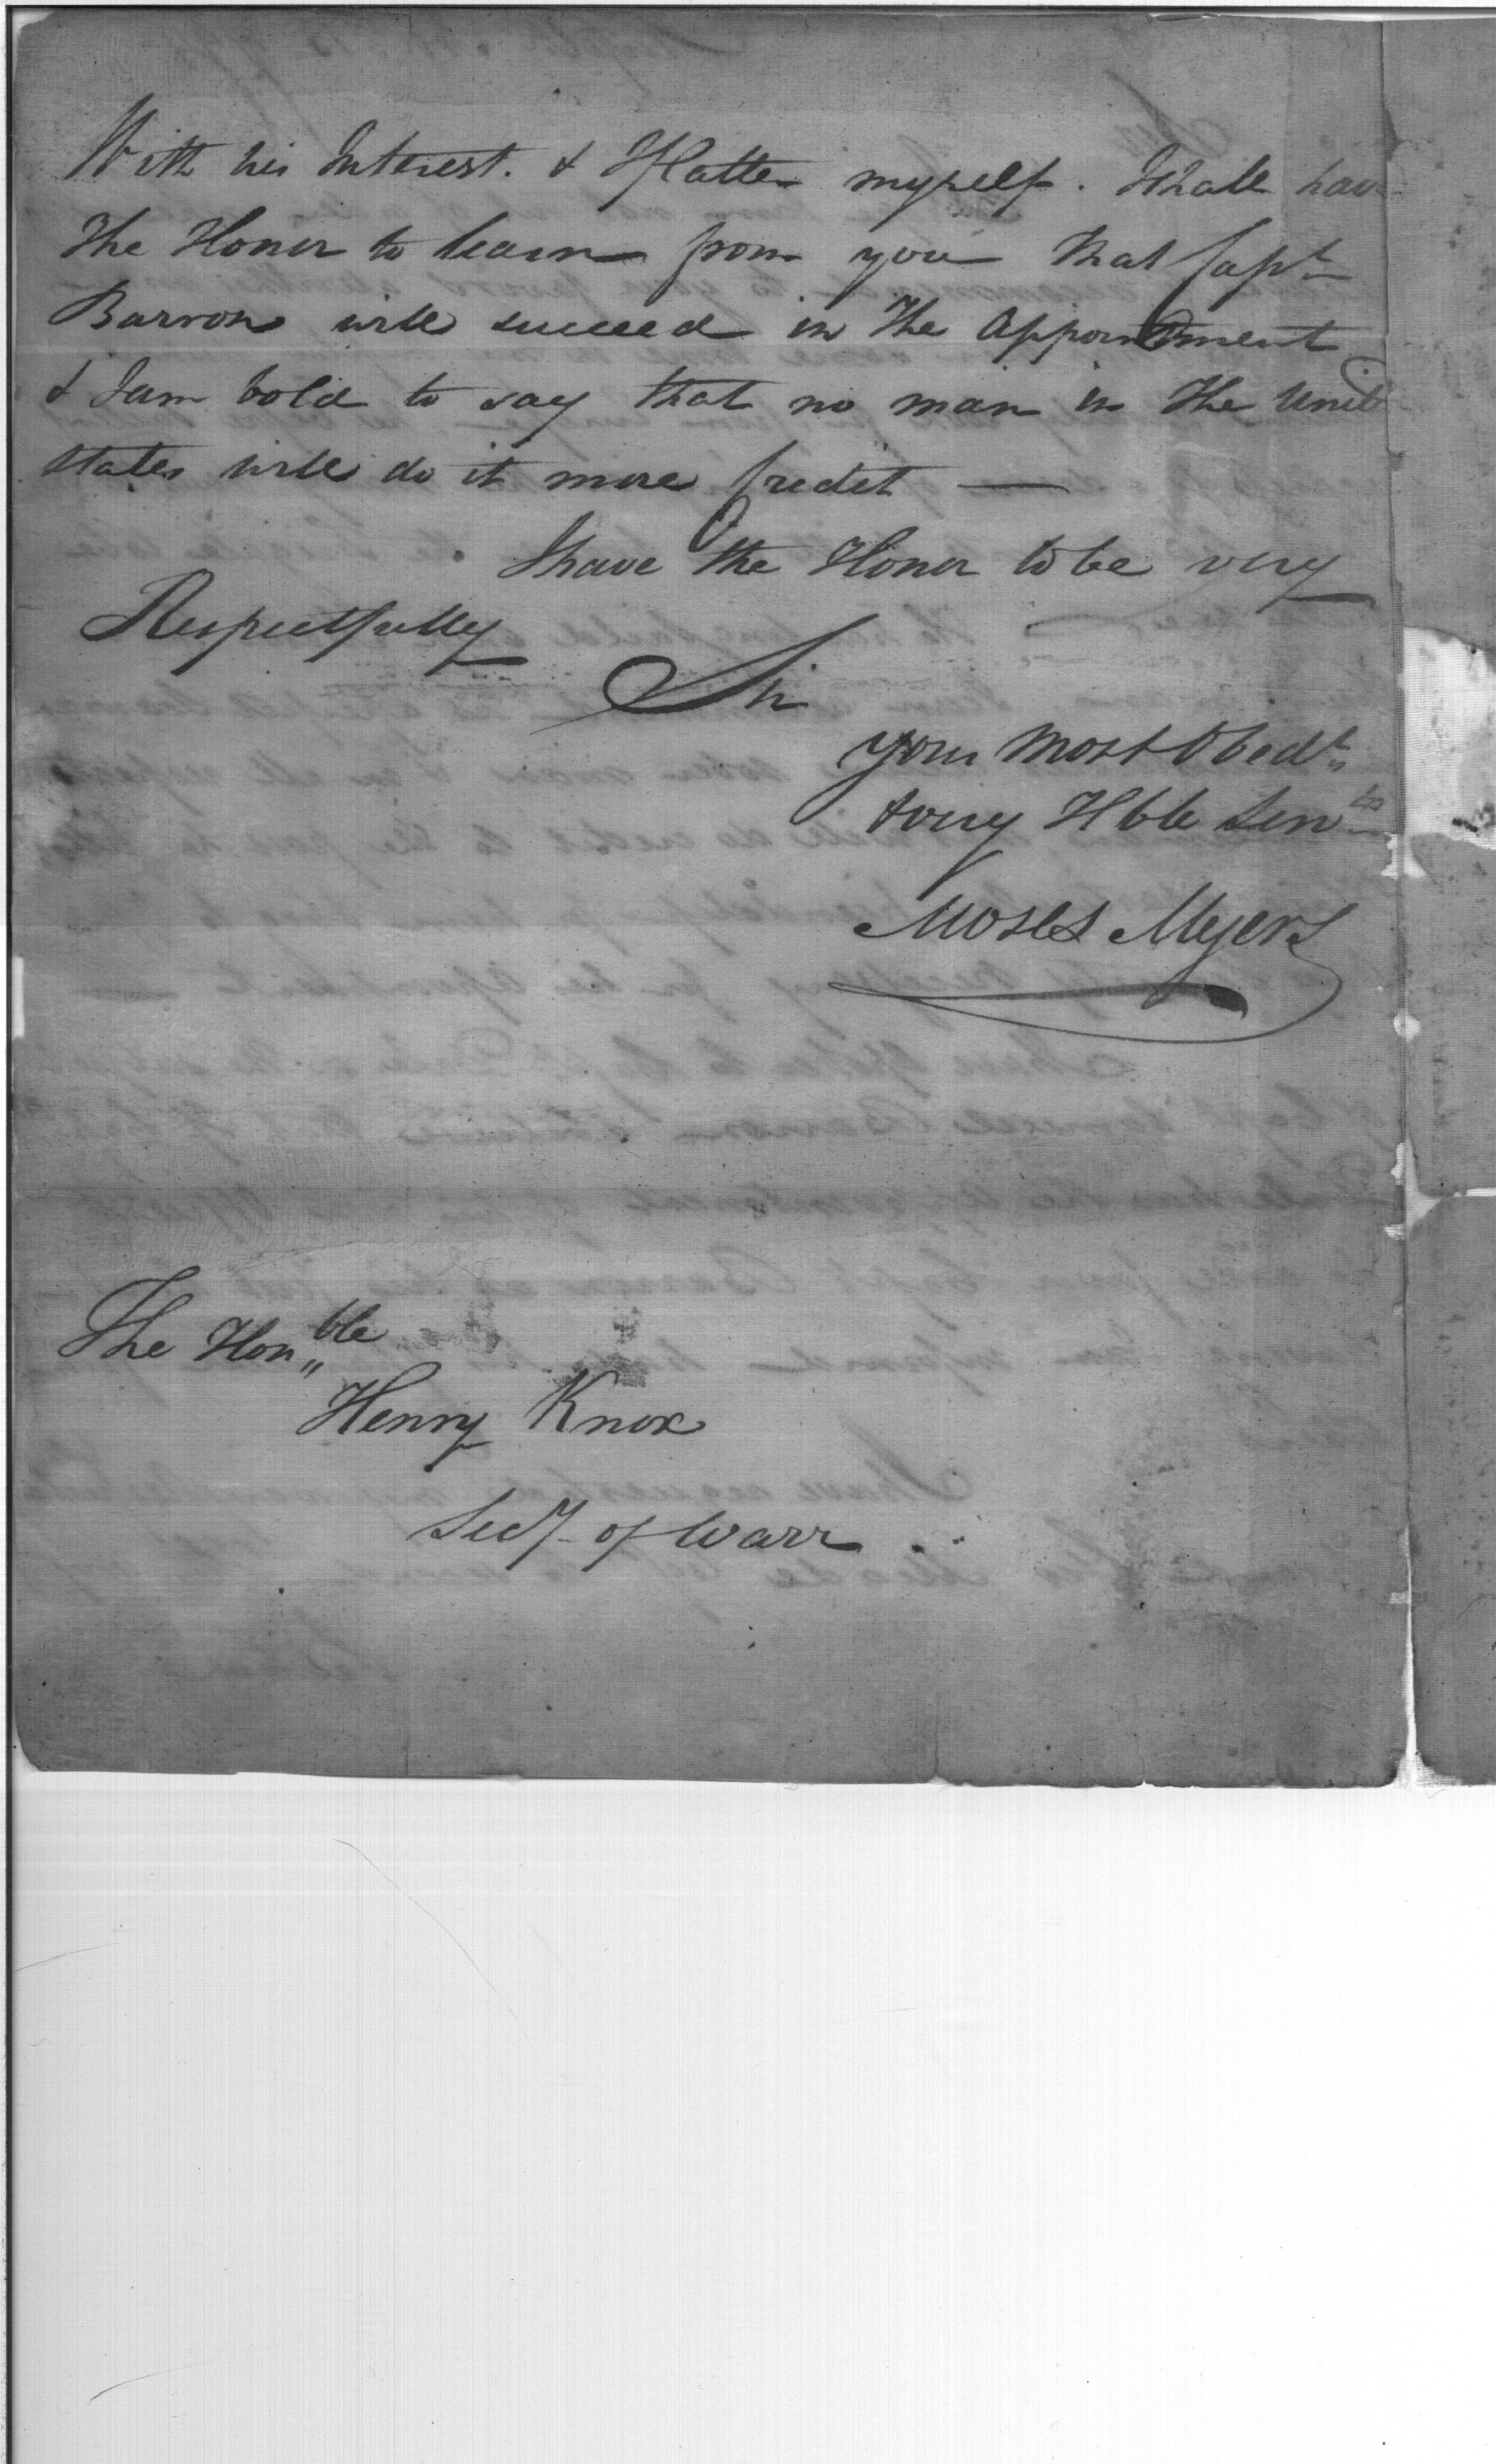 With his Interest. & I flatter myself. I shall have
The Honor to learn from you That Capt
Barron will succeed in The Appointment
& I am bold to say that no man in The Unit
States will do it more Credit —
I have the Honor to be very
Respectfully
Sir
your most Obedt
& very Hble Servt
Moses Myers
The Honble
Henry Knox
Secy of Warr